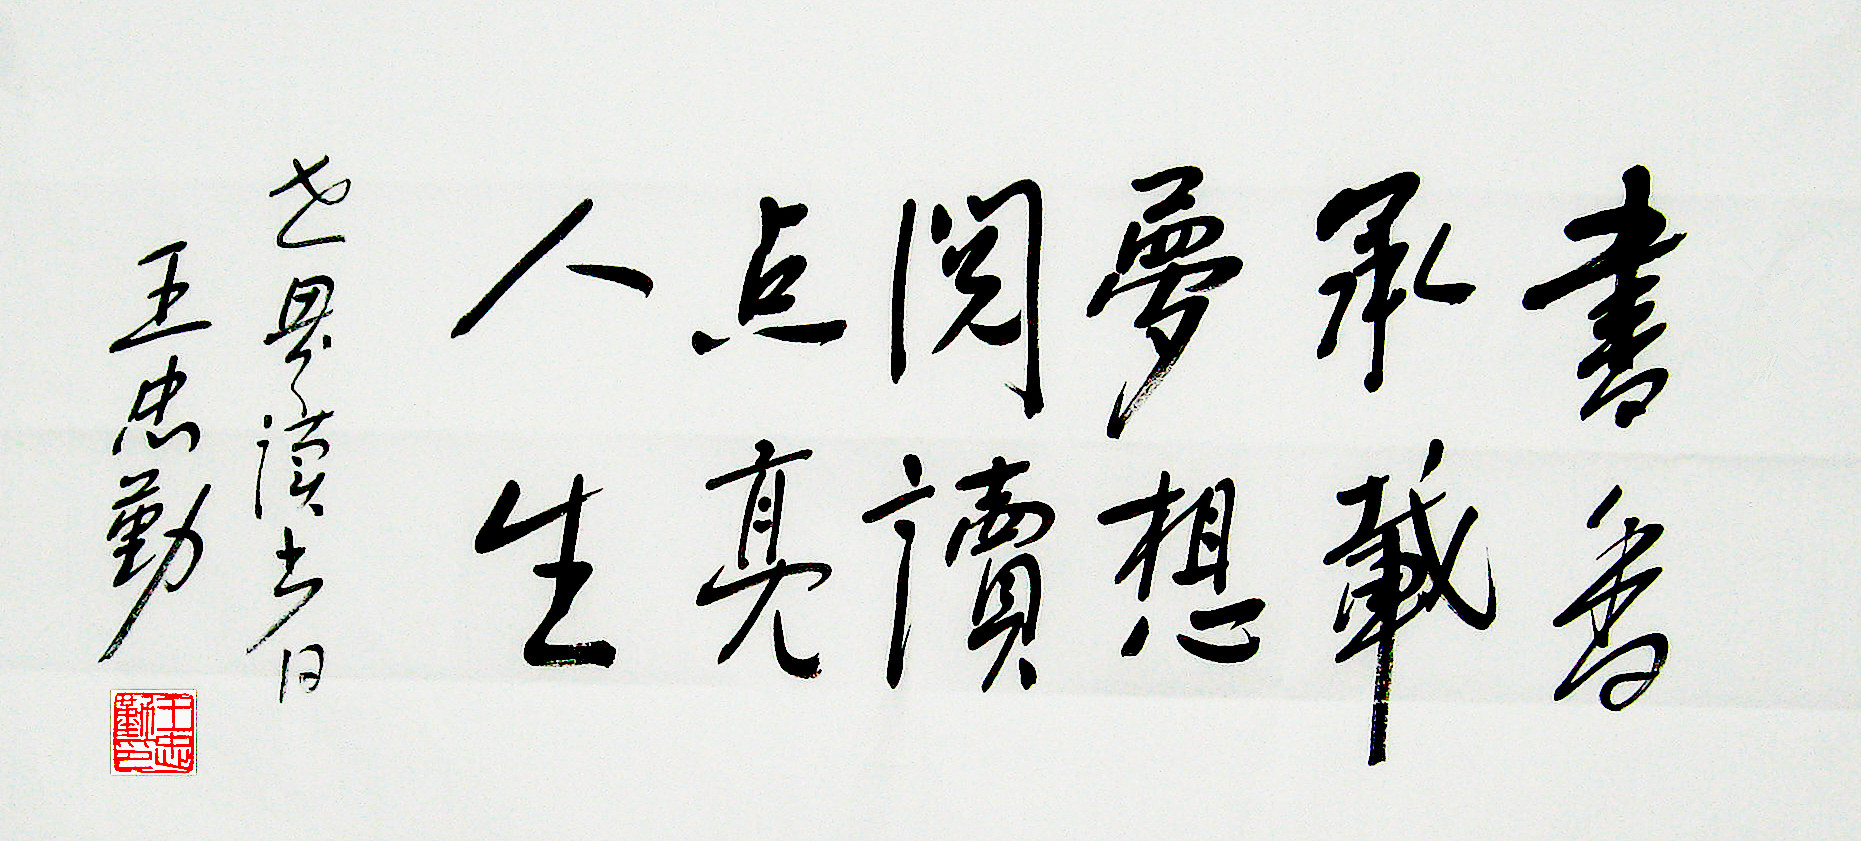 書香
承載
夢想
閱讀
点亮
人生
世界读书日
王忠勤
王忠勤印